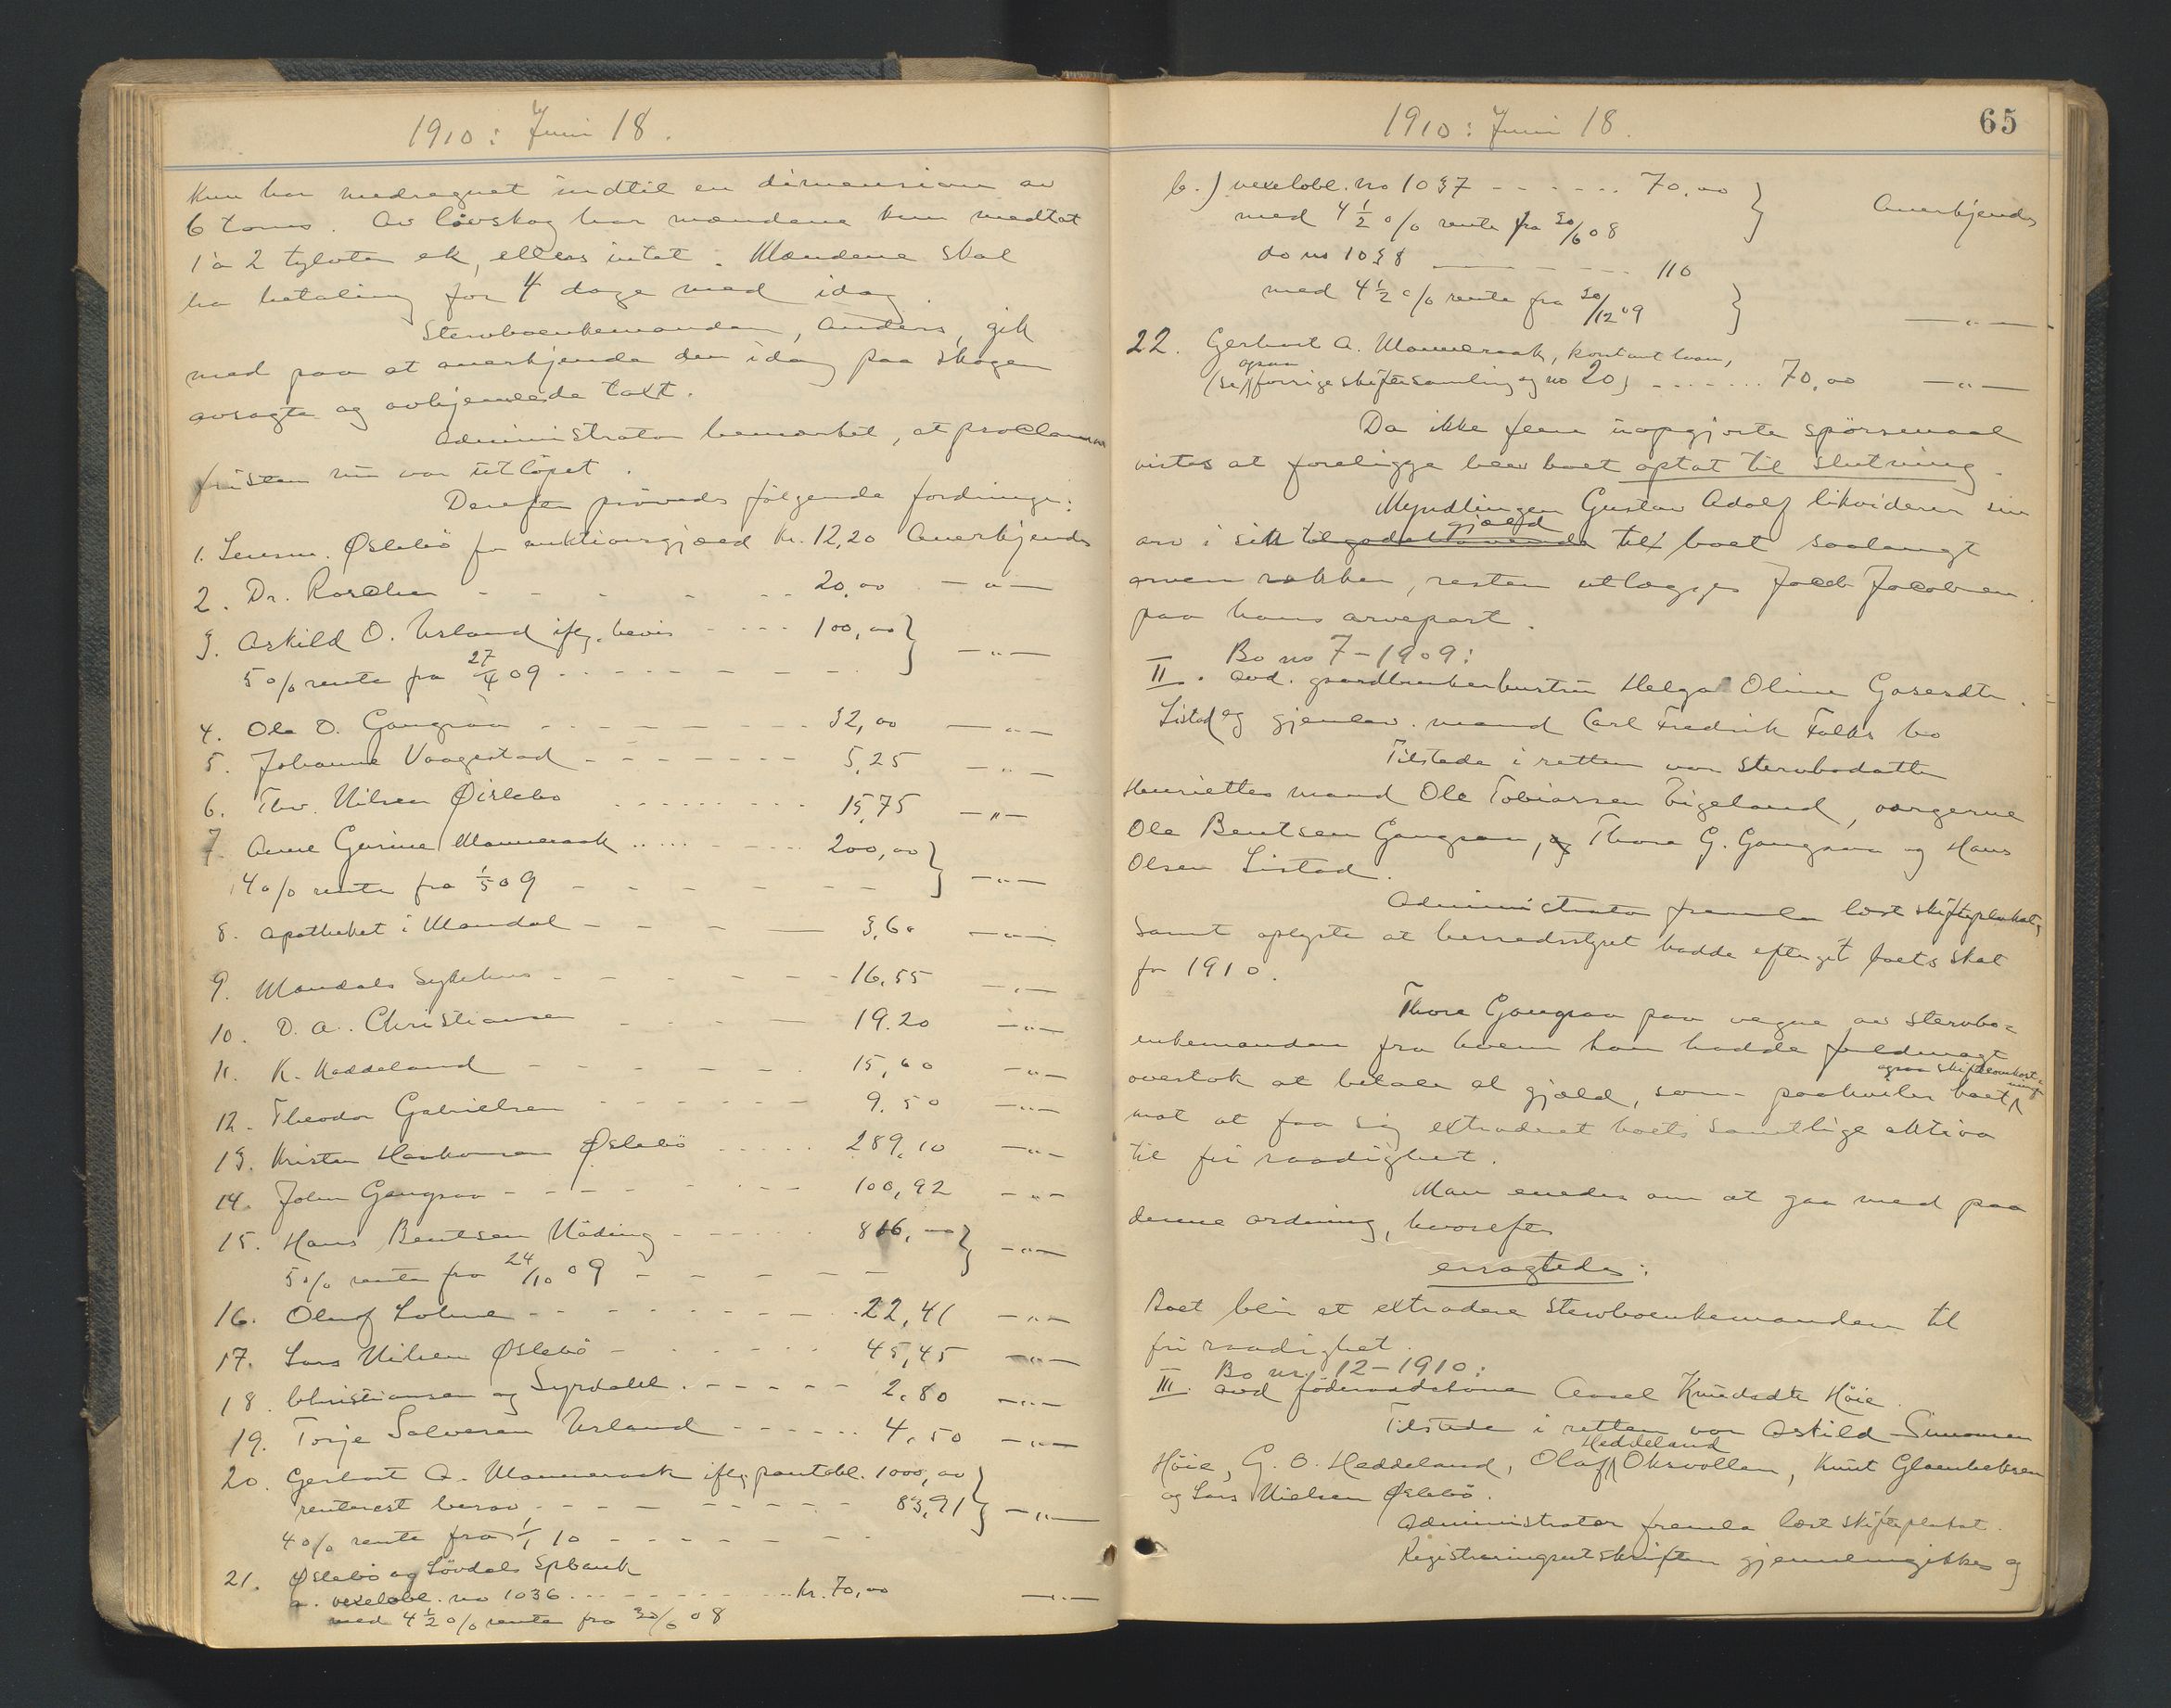 1910: Juni 18.
kun har medregnet indtil en dimension av
6 toms. Av løvskog har mændene kun medtat
1 a 2 tylvter ek, ellers intet. Mændene skal
ha betaling for 4 dage med idag.
Stervboenkemanden, Anders, gik
med paa at anerkjende den idag paa skogen
avsagte og avhjemlede takt.
Administrator bemerket, at proclama
fristen nu var utløpet.
Derefter prøvedes følgende fordringer:
1. Lensm. Øslebø for auktionsgjæld kr. 12,20 Anerkjendes
2. Dr. Roscher - - - - - 20,00 —"—
3. Askild O. Usland iflg. bevis - - - - 100,00 } —"—
5 o/o rente fra 27/4 09 - - - - - -
4. Ole O. Gangsaa - - - - - - 32,00 —"—
5. Johanne Vaagestad - - - - - - 5,25 —"—
6. Thv. Nilsen Øislebø - - - - - - 15,75 —"—
7. Anne Gurine Manneraak - - - - 200,00 } —"—
4 o/o rente fra 1/5 09 - - - - - -
8. Apotheket i Mandal - - - - - 3,60 —"—
9. Mandals Sykehus - - - - - - 16,55 —"—
10. O. A. Christiansen - - - - 19.20 —"—
11. K. Haddeland - - - - - - 15,60 —"—
12. Theodor Gabrielsen - - - - - - 9.50 —"—
13. Kristen Haakonsen Øslebø - - - - - 289,10 —"—
14. John Gangsaa - - - - - - - 100,92 —"—
15. Hans Bentsen Nøding - - - - - 816,00 } —"—
5 o/o rente fra 24/10 09 - - - - -
16. Oluf Lohne - - - - - - - 22,41 —"—
17. Lars Nilsen Øslebø - - - - - - 45,45 —"—
18. Christiansen og Syrdahl. - - - - - 2,80 —"—
19. Torje Salvesen Usland - - - - - - 4,50 —"—
20. Gerhart A. Manneraak iflg. pantobl. 1000,00 } —"—
renterest herav - - - - - - - - 83,91
4 o/o rente fra 1/1 10 - - - - - - -
21. Øslebø og Løvdals Spbank
a. vexelobl. no 1036 - - - - - - kr. 70,00 —"—
med 4 1/2 o/o rente fra 30/6 08
1910: Juni 18.
65
b.) vexelobl. no 1037 - - - - - - 70,00 } Anerkjendes
med 4 1/2 o/o rente fra 30/6 08
do no 1038 — - - - - 110 }
med 4 1/2 o/o rente fra 30/12 09 —"—
22. Gerhart A. Manneraak, kontant laan,
ogsaa
(se forrige skiftesamling og no 20) - - - - - - 70,00 —"—
Da ikke flere uopgjorte spørsmaal
vistes at foreligge blev boet optat til slutning.
Myndlingen Gustav Adolf likviderer sin
gjæld
arv i sin tilgodehavende til boet saalangt
arven rækker, resten utlægges Jacob Jacobsen
paa hans arvepart.
Bo no 7-1909:
II. Avd. gaardbrukerhustru Helga Oline Gasesdtr.
Listad og gjenlev. mand Carl Fredrik Falks bo
Tilstede i retten var stervbodatter
Henriettes mand Ole Tobiassen Vigeland, værgerne
Ole Bentsen Gangsaa, og Thore G. Gangsaa og Hans
Olsen Listad.
Administrator fremla læst skifteplakat,
samt oplyste at herredsstyret hadde eftergit boets skat
for 1910.
Thore Gangsaa paa vegne av stervbo-
enkemanden fra hvem han hadde fuldmagt
ogsaa skifteomkost-
ninger
overtok at betale al gjæld, som paahviler boet
mot at faa sig extraderet boets samtlige aktiva
til fri raadighet.
Man enedes om at gaa med paa
denne ordning, hvorefter
eragtedes:
Boet blir at extradere stervboenkemanden til
fri raadighet.
Bo nr. 12-1910:
III. avd føderaadskone Aasel Knudsdtr Høie.
Tilstede i retten var Askild Simonsen
Heddeland
Høie, G. O. Heddeland, Olaf Oksvollen, Knut Glambeksen
og Lars Nielsen Øslebø.
Administrator fremla læst skifteplakat.
Registreringsutskriften gjennemgikkes og